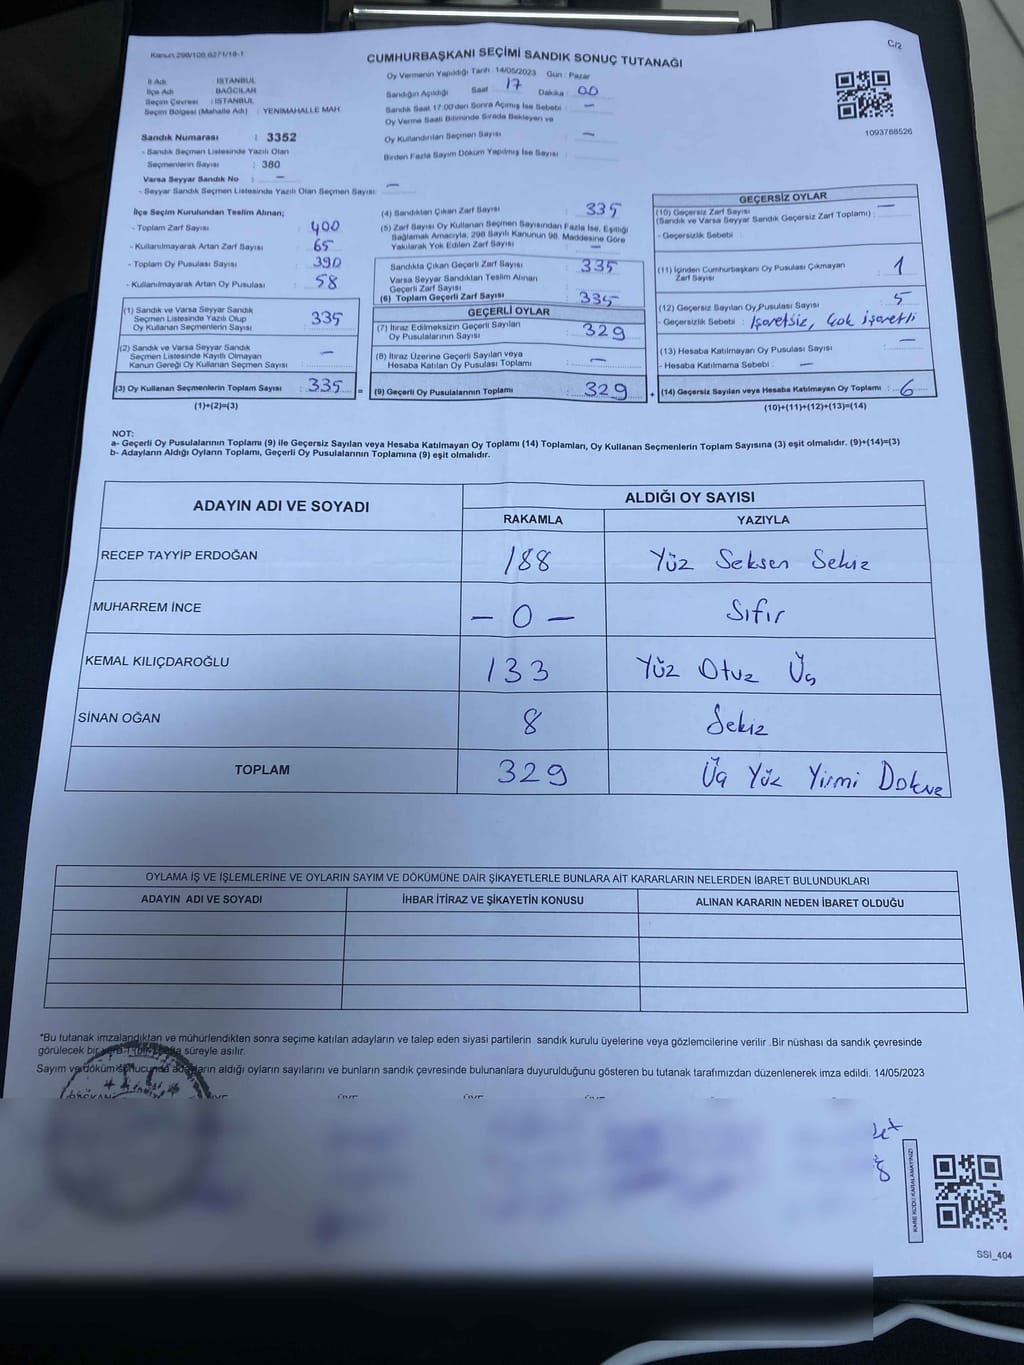 Kanun 298/106.6271/18-1
C/2
CUMHURBAŞKANI SEÇİMİ SANDIK SONUÇ TUTANAĞI
İl Adı : İSTANBUL
İlçe Adı : BAĞCILAR
Seçim Çevresi : İSTANBUL
Seçim Bölgesi (Mahalle Adı) : YENİMAHALLE MAH.
Sandık Numarası : 3352
- Sandık Seçmen Listesinde Yazılı Olan
Seçmenlerin Sayısı : 380
Varsa Seyyar Sandık No : —
- Seyyar Sandık Seçmen Listesinde Yazılı Olan Seçmen Sayısı: —
Oy Vermenin Yapıldığı Tarih : 14/05/2023 Gün : Pazar
Sandığın Açıldığı Saat : 17 Dakika : 00
Sandık Saat 17:00'den Sonra Açmış İse Sebebi : —
Oy Verme Saati Bitiminde Sırada Bekleyen ve
Oy Kullandırılan Seçmen Sayısı : —
Birden Fazla Sayım Döküm Yapılmış İse Sayısı :
1093788526
İlçe Seçim Kurulundan Teslim Alınan;
- Toplam Zarf Sayısı : 400
- Kullanılmayarak Artan Zarf Sayısı : 65
- Toplam Oy Pusulası Sayısı : 390
- Kullanılmayarak Artan Oy Pusulası : 58
(1) Sandık ve Varsa Seyyar Sandık
Seçmen Listesinde Yazılı Olup
Oy Kullanan Seçmenlerin Sayısı : 335
(2) Sandık ve Varsa Seyyar Sandık
Seçmen Listesinde Kayıtlı Olmayan
Kanun Gereği Oy Kullanan Seçmen Sayısı : —
(3) Oy Kullanan Seçmenlerin Toplam Sayısı : 335 =
(1)+(2)=(3)
(4) Sandıktan Çıkan Zarf Sayısı : 335
(5) Zarf Sayısı Oy Kullanan Seçmen Sayısından Fazla İse, Eşitliği
Sağlamak Amacıyla, 298 Sayılı Kanunun 98. Maddesine Göre
Yakılarak Yok Edilen Zarf Sayısı : —
Sandıkta Çıkan Geçerli Zarf Sayısı : 335
Varsa Seyyar Sandıktan Teslim Alınan
Geçerli Zarf Sayısı :
(6) Toplam Geçerli Zarf Sayısı : 335
GEÇERLİ OYLAR
(7) İtiraz Edilmeksizin Geçerli Sayılan
Oy Pusulalarının Sayısı : 329
(8) İtiraz Üzerine Geçerli Sayılan veya
Hesaba Katılan Oy Pusulası Toplamı : —
(9) Geçerli Oy Pusulalarının Toplamı : 329 +
GEÇERSİZ OYLAR
(10) Geçersiz Zarf Sayısı
(Sandık ve Varsa Seyyar Sandık Geçersiz Zarf Toplamı) : —
- Geçersizlik Sebebi :
(11) İçinden Cumhurbaşkanı Oy Pusulası Çıkmayan
Zarf Sayısı : 1
(12) Geçersiz Sayılan Oy Pusulası Sayısı : 5
- Geçersizlik Sebebi : İşaretsiz, Çok işaretli
(13) Hesaba Katılmayan Oy Pusulası Sayısı : —
- Hesaba Katılmama Sebebi : —
(14) Geçersiz Sayılan veya Hesaba Katılmayan Oy Toplamı : 6
(10)+(11)+(12)+(13)=(14)
NOT:
a- Geçerli Oy Pusulalarının Toplamı (9) ile Geçersiz Sayılan veya Hesaba Katılmayan Oy Toplamı (14) Toplamları, Oy Kullanan Seçmenlerin Toplam Sayısına (3) eşit olmalıdır. (9)+(14)=(3)
b- Adayların Aldığı Oyların Toplamı, Geçerli Oy Pusulalarının Toplamına (9) eşit olmalıdır.
ADAYIN ADI VE SOYADI
ALDIĞI OY SAYISI
RAKAMLA YAZIYLA
RECEP TAYYİP ERDOĞAN 188 Yüz Seksen Sekiz
MUHARREM İNCE — 0 — Sıfır
KEMAL KILIÇDAROĞLU 133 Yüz Otuz Üç
SİNAN OĞAN 8 Sekiz
TOPLAM 329 Üç Yüz Yirmi Dokuz
OYLAMA İŞ VE İŞLEMLERİNE VE OYLARIN SAYIM VE DÖKÜMÜNE DAİR ŞİKAYETLERLE BUNLARA AİT KARARLARIN NELERDEN İBARET BULUNDUKLARI
ADAYIN ADI VE SOYADI İHBAR İTİRAZ VE ŞİKAYETİN KONUSU ALINAN KARARIN NEDEN İBARET OLDUĞU
*Bu tutanak imzalandıktan ve mühürlendikten sonra seçime katılan adayların ve talep eden siyasi partilerin sandık kurulu üyelerine veya gözlemcilerine verilir .Bir nüshası da sandık çevresinde
görülecek bir yere 1 (bir) hafta süreyle asılır.
Sayım ve döküm sonucunda adayların aldığı oyların sayılarını ve bunların sandık çevresinde bulunanlara duyurulduğunu gösteren bu tutanak tarafımızdan düzenlenerek imza edildi. 14/05/2023
BAŞKAN ÜYE ÜYE ÜYE ÜYE
KARE KODU KARALAMAYINIZ!
SSI_404